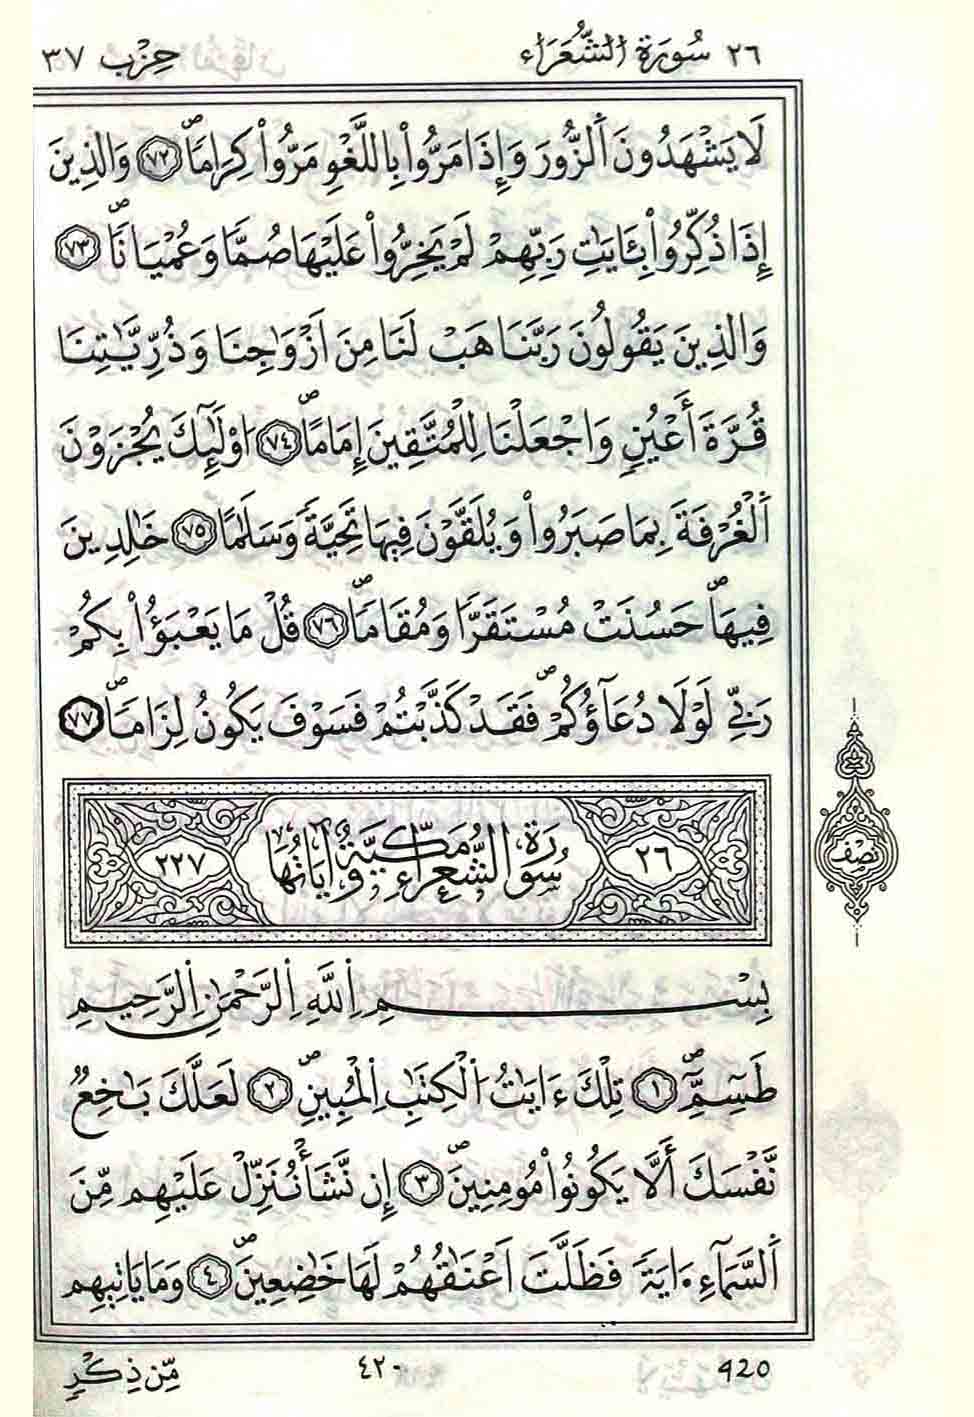 ٢٦ سُورَةُ الشُّعَرَاء حِزْب ٣٧
لَا يَشْهَدُونَ اَ۬لزُّورَ وَإِذَا مَرُّواْ بِاللَّغْوِ مَرُّواْ كِرَاماٗۖ ٧٢ وَالذِينَ
إِذَا ذُكِّرُواْ بِـَٔايَٰتِ رَبِّهِمْ لَمْ يَخِرُّواْ عَلَيْهَا صُمّاٗ وَعُمْيَاناٗۖ ٧٣
وَالذِينَ يَقُولُونَ رَبَّنَا هَبْ لَنَا مِنَ اَزْوَٰجِنَا وَذُرِّيَّٰتِنَا
قُرَّةَ أَعْيُنٖ وَاجْعَلْنَا لِلْمُتَّقِينَ إِمَاماًۖ ٧٤ ا۟وْلَٰٓئِكَ يُجْزَوْنَ
اَ۬لْغُرْفَةَ بِمَا صَبَرُواْ وَيُلَقَّوْنَ فِيهَا تَحِيَّةٗ وَسَلَٰماً ٧٥ خَٰلِدِينَ
فِيهَاۖ حَسُنَتْ مُسْتَقَرّاٗ وَمُقَاماٗۖ ٧٦ قُلْ مَا يَعْبَؤُاْ بِكُمْ
رَبِّي لَوْلَا دُعَآؤُكُمْۖ فَقَدْ كَذَّبْتُمْ فَسَوْفَ يَكُونُ لِزَاماٗۖ ٧٧
٢٦ سُورَةُ الشُّعَرَاءِ مَكِّيَّةٌ وَآيَاتُهَا ٢٢٧
نِصْف
بِسْمِ اِ۬للَّهِ اِ۬لرَّحْمَٰنِ اِ۬لرَّحِيمِ
طَسِٓمِّٓۖ ١ تِلْكَ ءَايَٰتُ اُ۬لْكِتَٰبِ اِ۬لْمُبِينِۖ ٢ لَعَلَّكَ بَٰخِعٞ
نَّفْسَكَ أَلَّا يَكُونُواْ مُومِنِينَۖ ٣ إِن نَّشَأْ نُنَزِّلْ عَلَيْهِم مِّنَ
اَ۬لسَّمَآءِ ا۪يَةٗ فَظَلَّتَ اَعْنَٰقُهُمْ لَهَا خَٰضِعِينَۖ ٤ وَمَا يَاتِيهِم
مِّن ذِكْرٖ ٤٢٠ 420